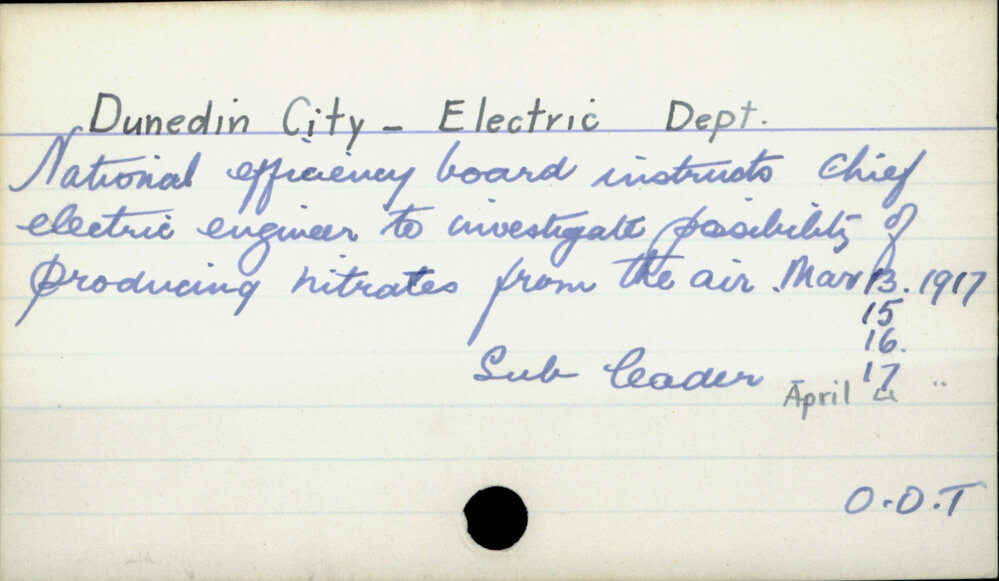 Dunedin City - Electric Dept.
National efficiency board instructs chief
electric engineer to investigate possibility of
producing nitrates from the air. Mar 13. 1917
15
16.
Sub leader 17
April 4 "
O.D.T